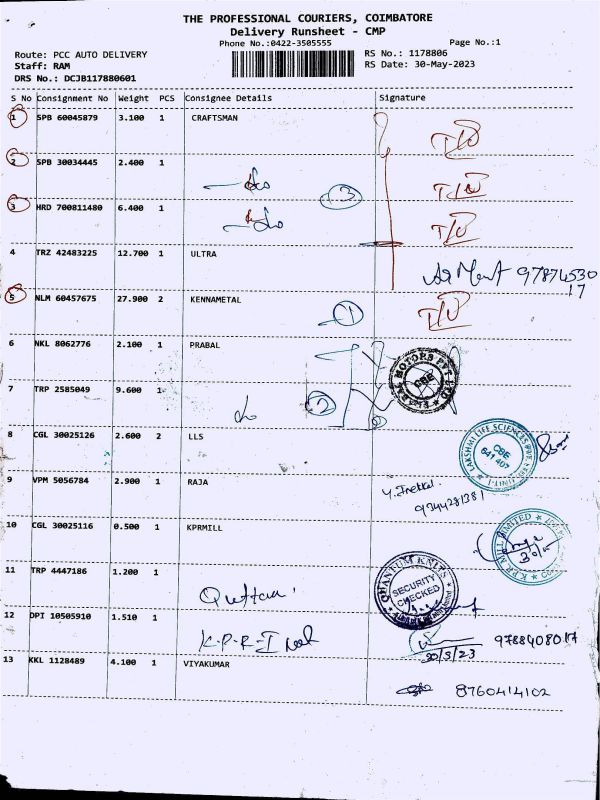 THE PROFESSIONAL COURIERS, COIMBATORE
Delivery Runsheet - CMP
Phone No.:0422-3505555
Page No.:1
Route: PCC AUTO DELIVERY
RS No.: 1178806
Staff: RAM
RS Date: 30-May-2023
DRS No.: DCJB117880601
S No Consignment No Weight PCS Consignee Details Signature
1 SPB 60045879 3.100 1 CRAFTSMAN
2 SPB 30034445 2.400 1
3
3 HRD 700811480 6.400 1
4 TRZ 42483225 12.700 1 ULTRA
97874530
17
5 NLM 60457675 27.900 2 KENNAMETAL
1
6 NKL 8062776 2.100 1 PRABAL
MOTORS PVT LTD
CBE
7 TRP 2585049 9.600 1
2
8 CGL 30025126 2.600 2 LLS
LAKSHMI LIFE SCIENCES
CBE
641 407
9 VPM 5056784 2.900 1 RAJA
9344281381
10 CGL 30025116 0.500 1 KPRMILL
K.P.R. MILL LIMITED
11 TRP 4447186 1.200 1
QUANTUM KNITS
SECURITY
CHECKED
12 DPI 10505910 1.510 1
K.P.R-I
30/5/23
13 KKL 1128489 4.100 1 VIYAKUMAR
8760414102